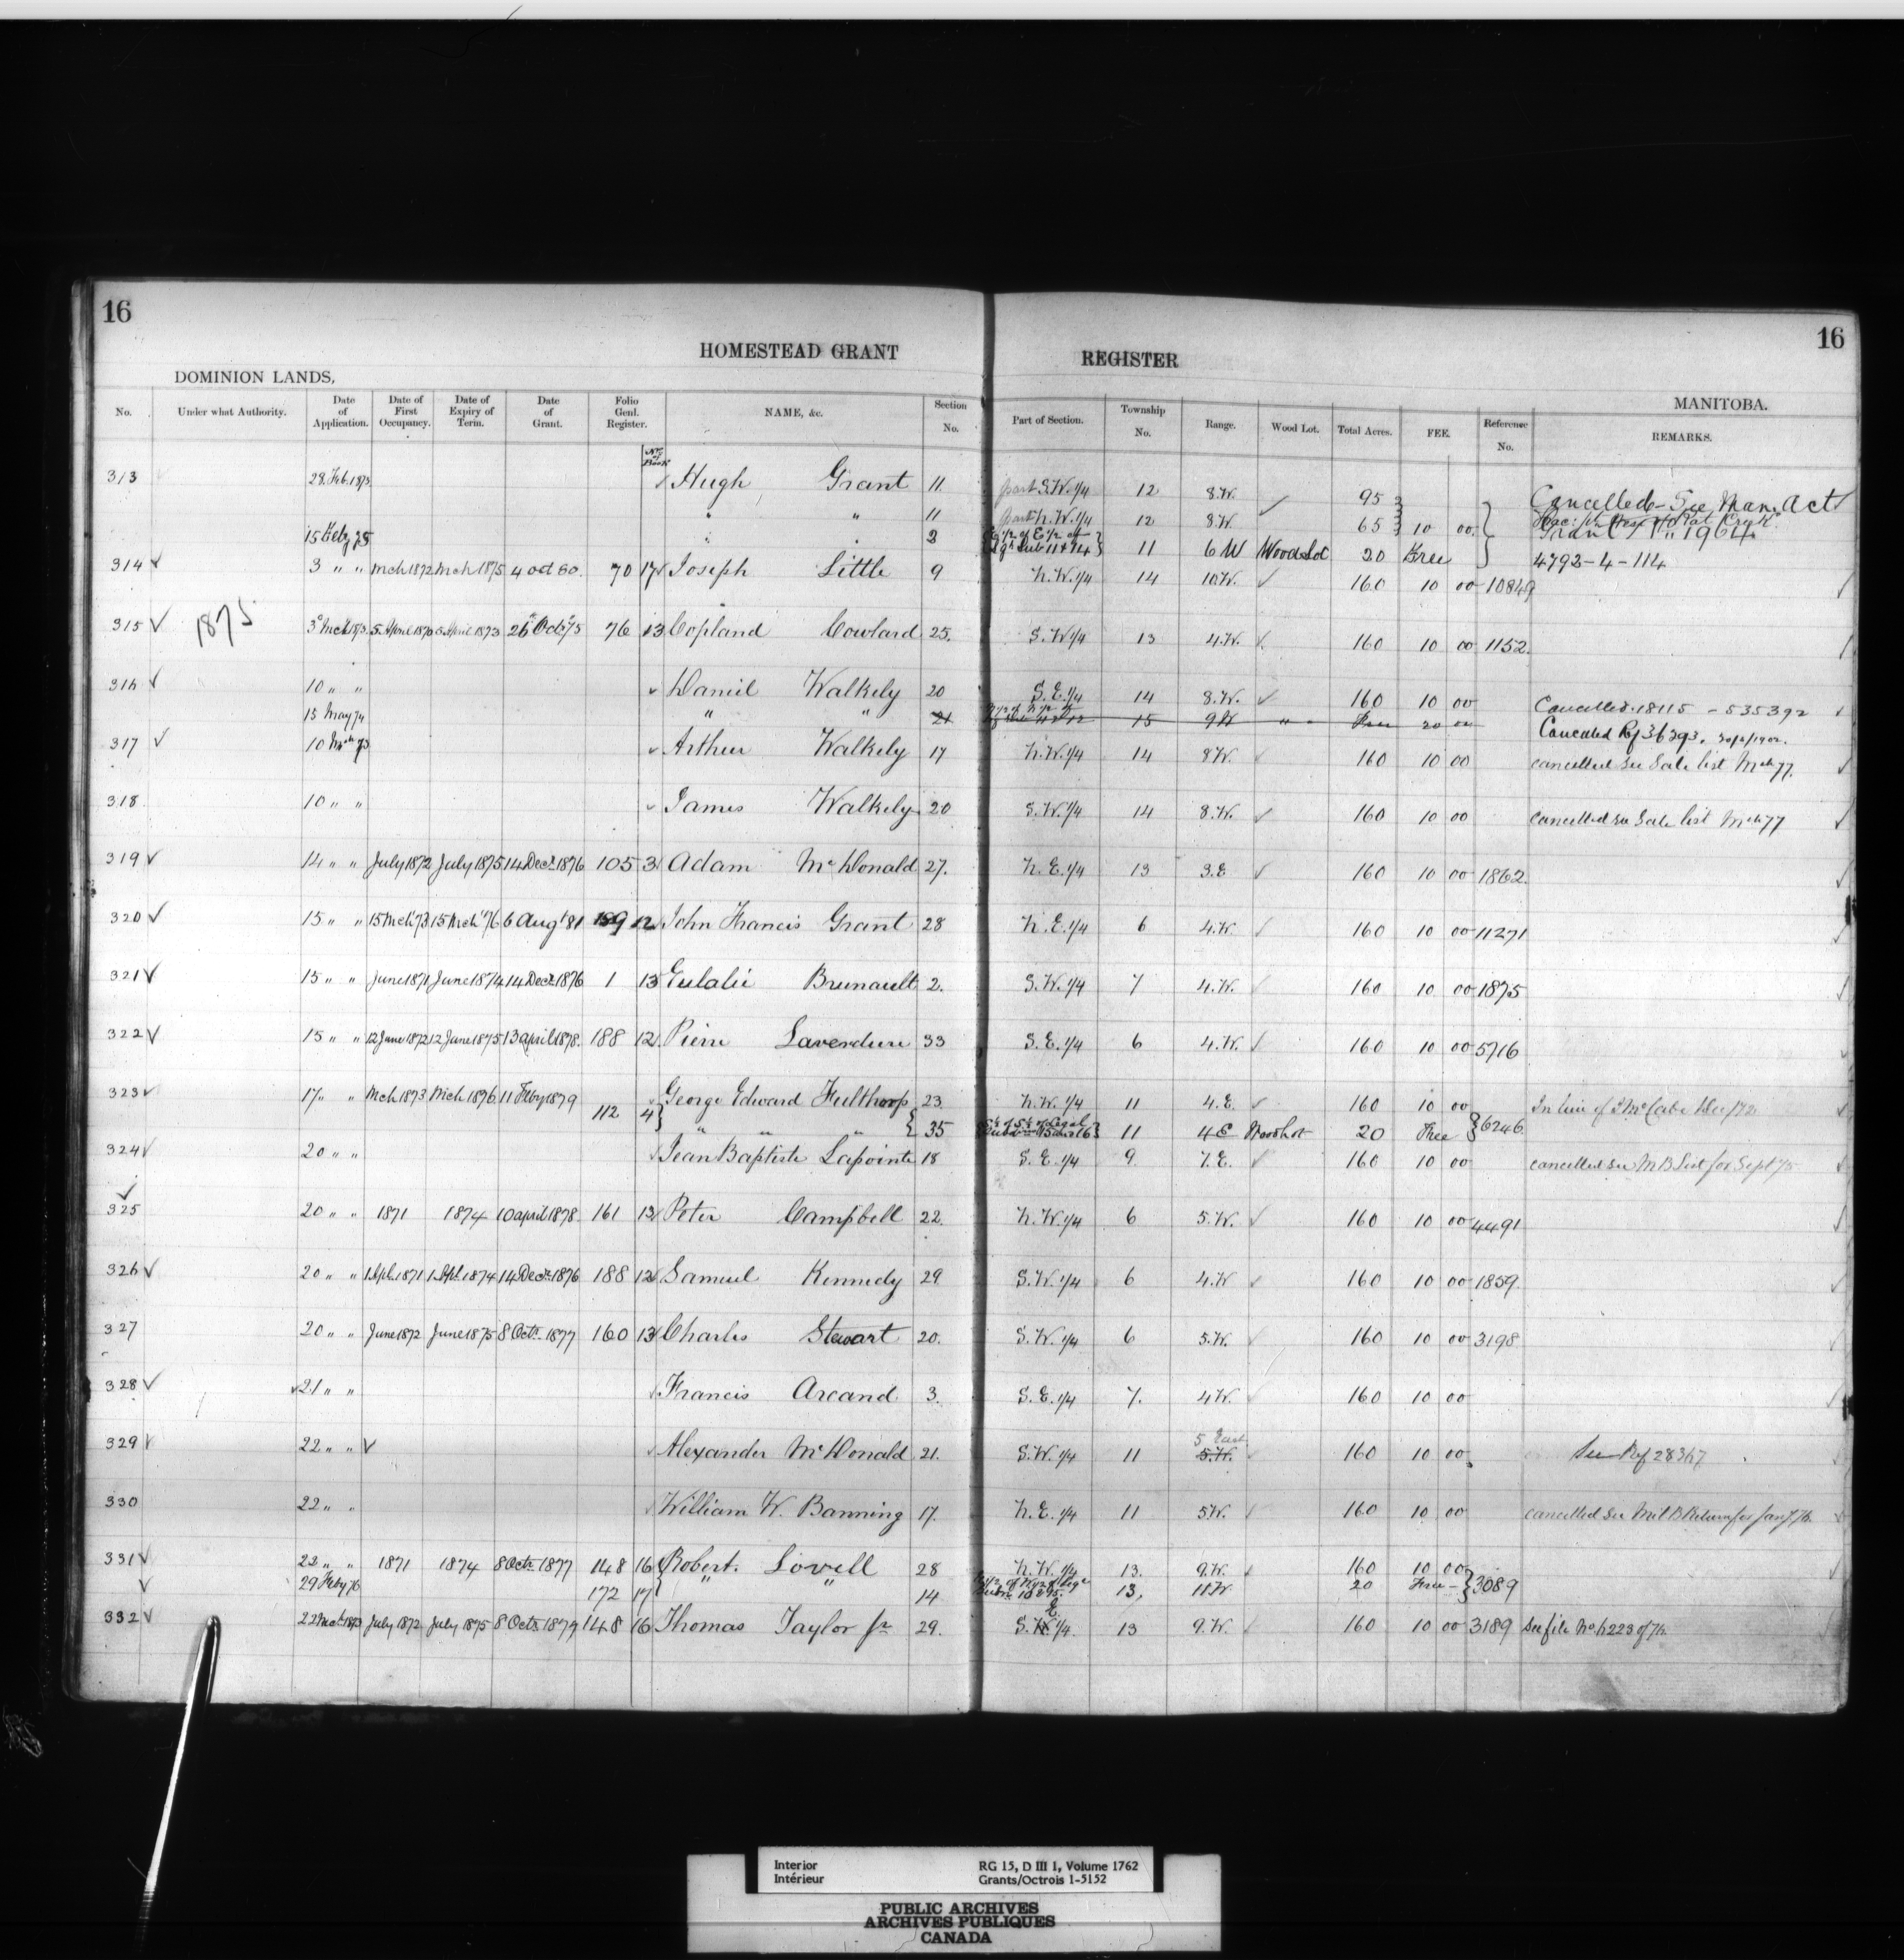 16
16
HOMESTEAD GRANT REGISTER
DOMINION LANDS,
MANITOBA.
No. Under what Authority. Date of Application. Date of First Occupancy. Date of Expiry of Term. Date of Grant. Folio Genl. Register. NAME, &c. Section No. Part of Section. Township No. Range. Wood Lot. Total Acres. FEE. Reference No. REMARKS.
No. of Book
313 28 Feb. 1873 Hugh Grant 11 part S.W. 1/4 12 8.W. 95 Cancelled - See Man. Act
" " 11 part N.W. 1/4 12 8.W. 65 10 00
15 Feby 75 " " 2 11 6 W Wood Lot 20 Free 4792-4-114
314 3 " " Mch 1872 Mch 1875 4 Oct 80. 70 17 Joseph Little 9 N.W. 1/4 14 10.W. 160 10 00 10849
315 1875 3 Mch 1873 5 April 1870 5 April 1873 26 Octr 75 76 13 Copland Cowlard 25. S.W 1/4 13 4.W. 160 10 00 1152
316 10 " " Daniel Walkely 20 S.E. 1/4 14 8.W. 160 10 00 Cancelled 18115 - 535392
15 May 74 " " 21 15 9W " " Free 20 00 Cancelled Rf 36293.
317 10 Mch 73 Arthur Walkely 17 N.W. 1/4 14 8W. 160 10 00 cancelled see Sale list Mch 77.
318 10 " " James Walkely 20 S.W. 1/4 14 8.W. 160 10 00 cancelled see Sale list Mch 77
319 14 " " July 1872 July 1875 14 Decr 1876 105 3 Adam McDonald 27. N.E. 1/4 13 3.E 160 10 00 1862
320 15 " " 15 Mch 73 15 Mch 76 6 Augt 81 189 12 John Francis Grant 28 N.E. 1/4 6 4.W. 160 10 00 11271
321 15 " " June 1871 June 1874 14 Decr 1876 1 13 Eulalie Brunault 2. S.W. 1/4 7 4.W. 160 10 00 1875
322 15 " " 12 June 1872 12 June 1875 13 april 1878. 188 12 Pierre Laverdure 33 S.E. 1/4 6 4.W. 160 10 00 5716
323 17 " " Mch 1873 Mch 1876 11 Feby 1879 George Edward Fulthorp 23 N.W. 1/4 11 4.E. 160 10 00 In lieu of
112 4 " " " 35 11 4E Woodlot 20 Free 6246
324 20 " " Jean Baptiste Lapointe 18 S.E. 1/4 9 7.E. 160 10 00 cancelled see M B List for Sept 75
325 20 " " 1871 1874 10 april 1878. 161 13 Peter Campbell 22. N.W. 1/4 6 5.W. 160 10 00 4491
326 20 " " 1 Apl. 1871 1 Apl. 1874 14 Decr 1876 188 12 Samuel Kennedy 29 S.W. 1/4 6 4.W 160 10 00 1859
327 20 " " June 1872 June 1875 8 Octr 1877 160 13 Charles Stewart 20. S.W. 1/4 6 5.W. 160 10 00 3198
328 21 " " Francis Arcand 3. S.E. 1/4 7. 4W. 160 10 00
5 East
329 22 " " Alexander McDonald 21. S.W. 1/4 11 5.W. 160 10 00 See Ref 28367
330 22 " " William W. Banning 17. N.E. 1/4 11 5W. 160 10 00 cancelled see Mil B Return for Jany 76
331 22 " " 1871 1874 8 Octr 1877 148 16 Robert Lovell 28 N.W. 1/4 13. 9.W. 160 10 00
29 Feby 76 172 17 " " 14 13, 11W 20 Free 3089
332 22 Mch 1873 July 1872 July 1875 8 Octr 1877 148 16 Thomas Taylor jr 29. S.E. 1/4 13 9.W. 160 10 00 3189 See file No. 6223 of 76
Interior RG 15, D III 1, Volume 1762
Intérieur Grants/Octrois 1-5152
PUBLIC ARCHIVES
ARCHIVES PUBLIQUES
CANADA